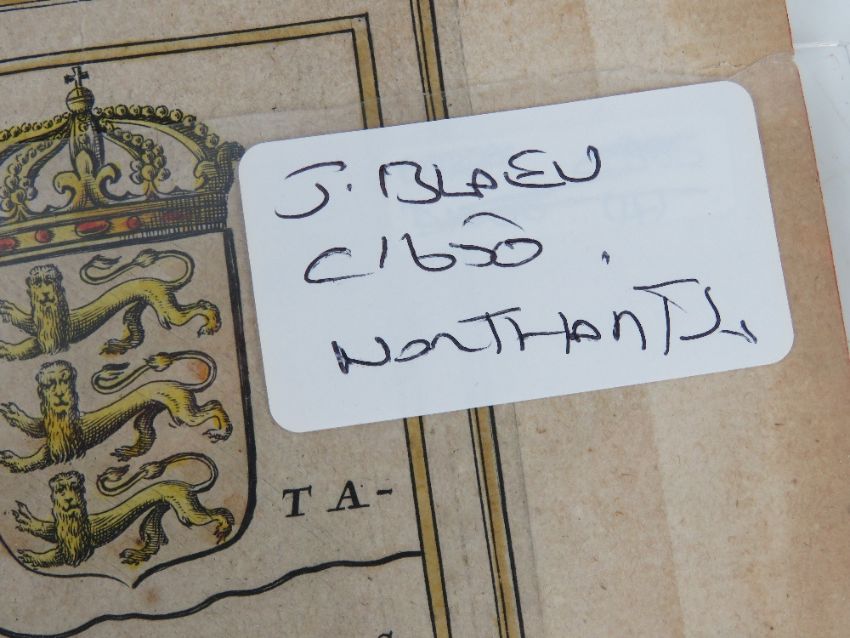 J. BLAEU
C1650.
NORTHANTS.
TA-